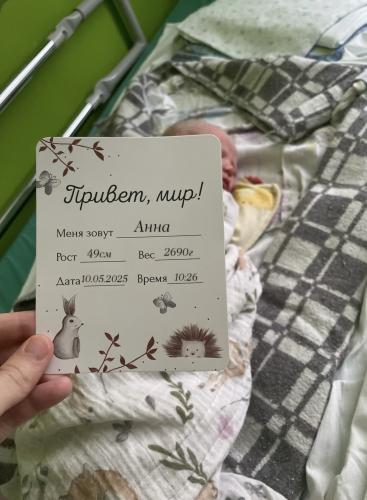 Привет, мир!
Меня зовут Анна
Рост 49см Вес 2690г
Дата 10.05.2025 Время 10:26